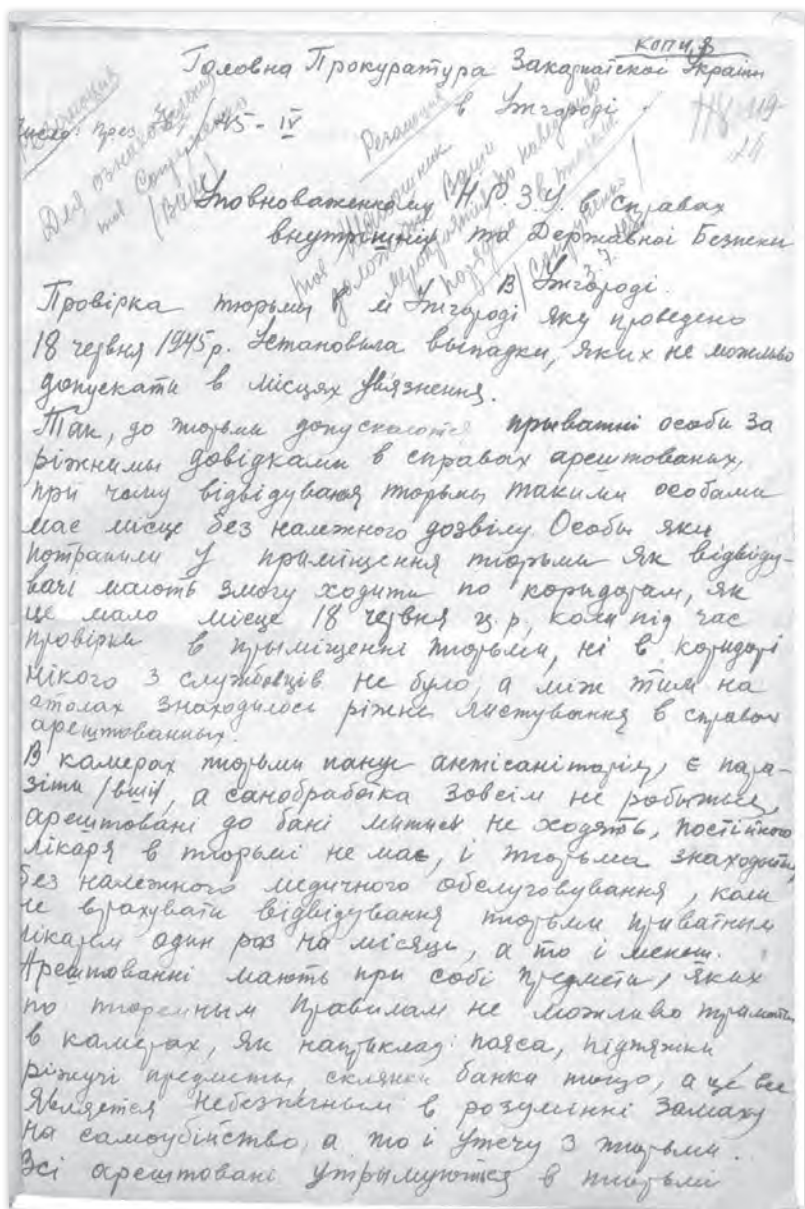 копия
Головна Прокуратура Закарпатской Украіни
в Ужгороді
Число: През. /45-IV
Резолюция
Для ознакомления
тов
/Ваш/
Резолюция
тов
Ваши
мероприятия по наведению
порядка в тюрьме
3.7.
119
Уповноваженому Н.Р.З.У. в справах
внутрішніх та Державноі Безпеки
В Ужгороді.
Провірка тюрьми в м Ужгороді яку проведено
18 червня 1945р. Установила выпадки, яких не можливо
допускати в місцях ув'язнення.
Так, до тюрьми допускаются прыватні особи за
ріжнимы довідками в справах арештованых,
при чому відвідування тюрьмы такими особами
має місце без належного дозвілу. Особы яки
потрапили у приміщення тюрьми як відвіду-
вачі мають змогу ходити по коридорам, як
це мало місце 18 червня ц.р, коли під час
провірки в прыміщенні тюрьми, ні в коридорі
нікого з службовців не було, а між тим на
столах знаходилося ріжне листування в справах
арештованных.
В камерах тюрьми панує антісанітарія, є пара-
зіти /вши/, а санобработка зовсім не робиться,
арештовані до бані митися не ходять, постійного
лікаря в тюрьмі не має, і тюрьма знаходиться
без належного медичного обслуговування, коли
не врахувати відвідування тюрьми приватним
лікарем один раз на місяць, а то і менш.
Арештованні мають при собі предмети, яких
по тюремным правилам не можливо тримати
в камерах, як наприклад: пояса, підтяжки
ріжучі предметы, склянки банки тощо, а це все
является небезпечным в розумінні замаху
на самоубійство, а то і утечу з тюрьми.
Всі арештовані утрымуются в тюрьмі